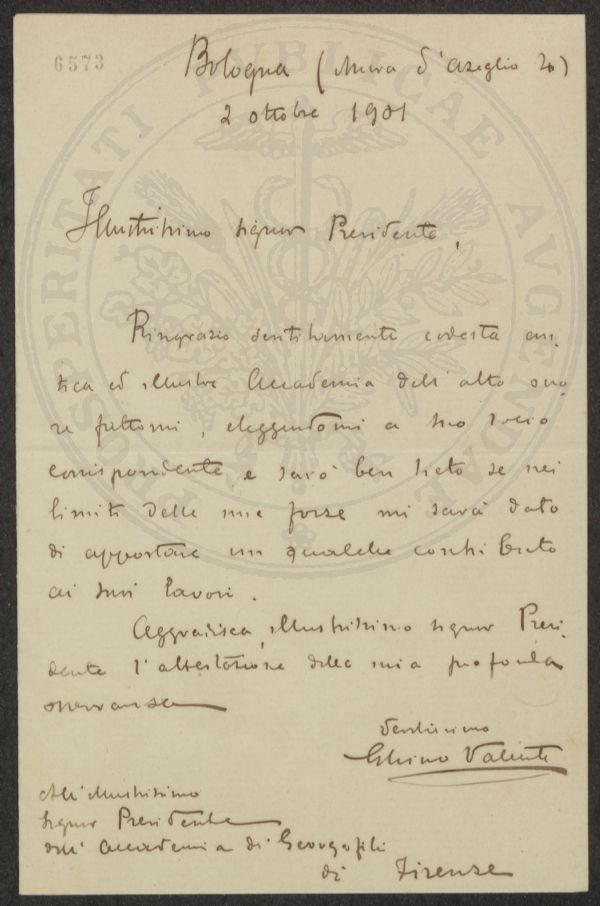 6573
Bologna (Mura d'Azeglio 20)
2 ottobre 1901
PROSPERITATI PUBLICAE AUGENDAE
Illustrissimo signor Presidente,
Ringrazio sentitamente codesta an-
tica ed illustre Accademia dell'alto ono-
re fattomi, eleggendomi a suo socio
corrispondente, e sarò ben lieto se nei
limiti delle mie forze mi sarà dato
di apportare un qualche contributo
ai suoi lavori.
Aggradisca, illustrissimo signor Presi-
dente l'attestazione della mia profonda
osservanza
devotissimo
Ghino Valenti
All'illustrissimo
signor Presidente
dell'Accademia di Georgofili
di Firenze